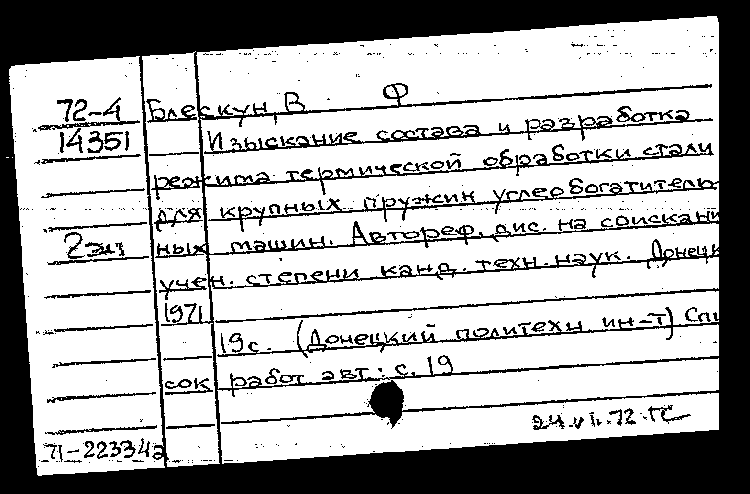 72-4 Блескун, В Ф
14351 Изыскание состава и разработка
режима термической обработки стали
для крупных пружин углеобогатитель-
2 экз ных машин. Автореф. дис. на соискани
учен. степени канд. техн. наук. Донецк
1971
19 с. (Донецкий политехн. ин-т) Спи
сок работ авт.: с. 19
71-22334а